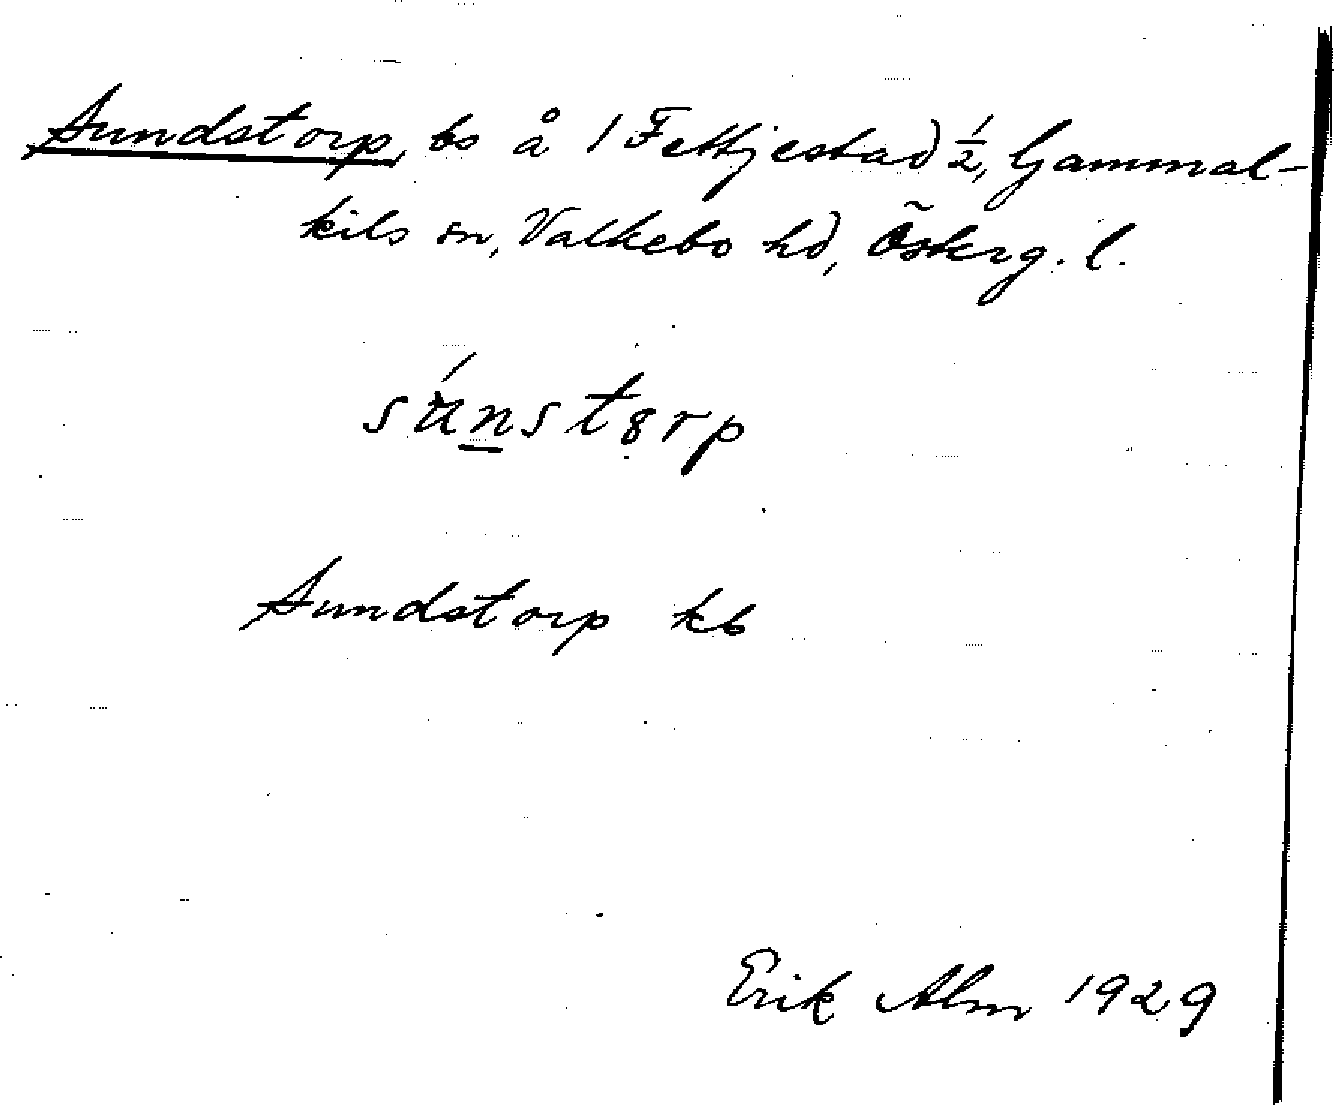 Sundstorp, bs å 1 Fettjestad ½, Gammal-
kils sn, Valkebo hd, Österg. l.
súnstɞrp
Sundstorp kb
Erik Alm 1929